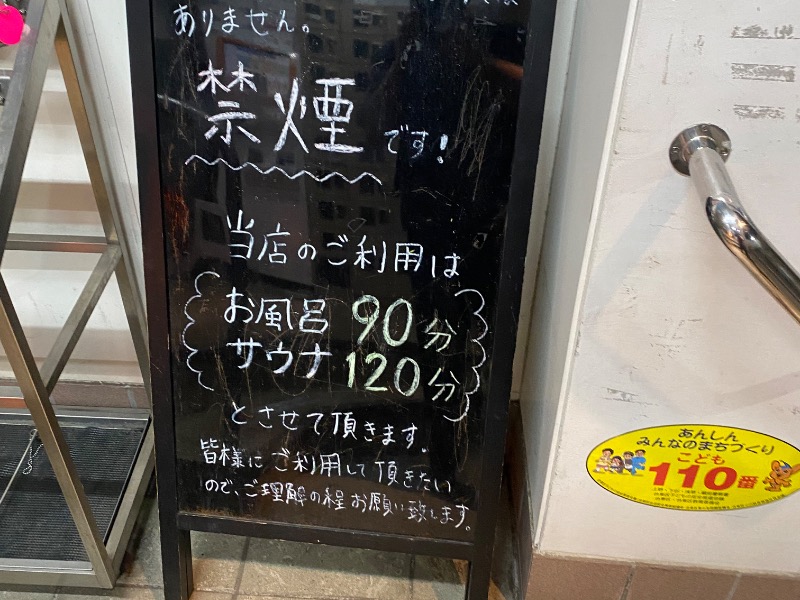 ありません。
禁煙です!
当店のご利用は
お風呂 90分
サウナ 120分
とさせて頂きます.
皆様にご利用して頂きたい
ので、ご理解の程お願い致します。
あんしん
みんなのまちづくり
こども
110番